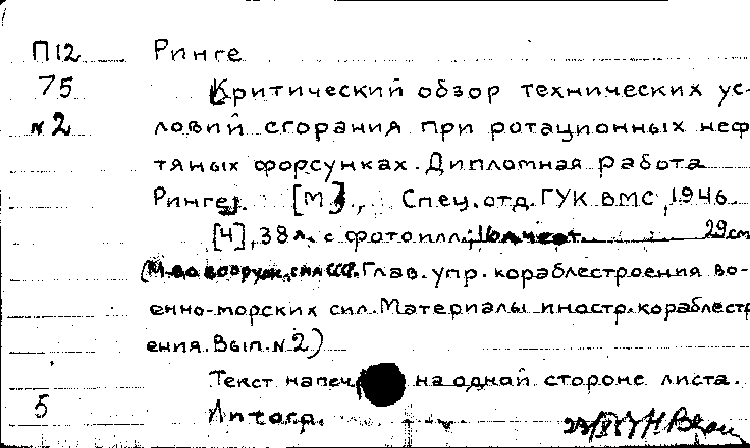 П12 Ринге
75 Критический обзор технических ус-
№2 ловий сгорания при ротационных неф
тяных форсунках. Дипломная работа
Ринге. [М.], Спец. отд. ГУК ВМС, 1946.
[4], 38 л. с фотоилл.; 29 см
(М-во вооруж. сил СССР. Глав. упр. кораблестроения во-
енно-морских сил. Материалы иностр. кораблестр
ения. Вып. №2)
Текст напеч. на одной стороне листа.
5 Литогр.